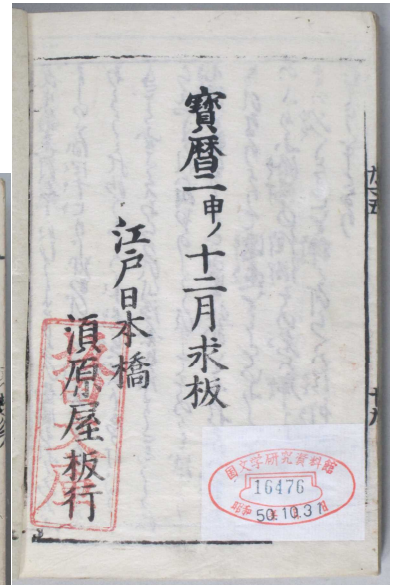 寳暦二申ノ十二月求板
江戸日本橋
須原屋板行
文庫
国文学研究資料館
16476
昭和
50.10.31